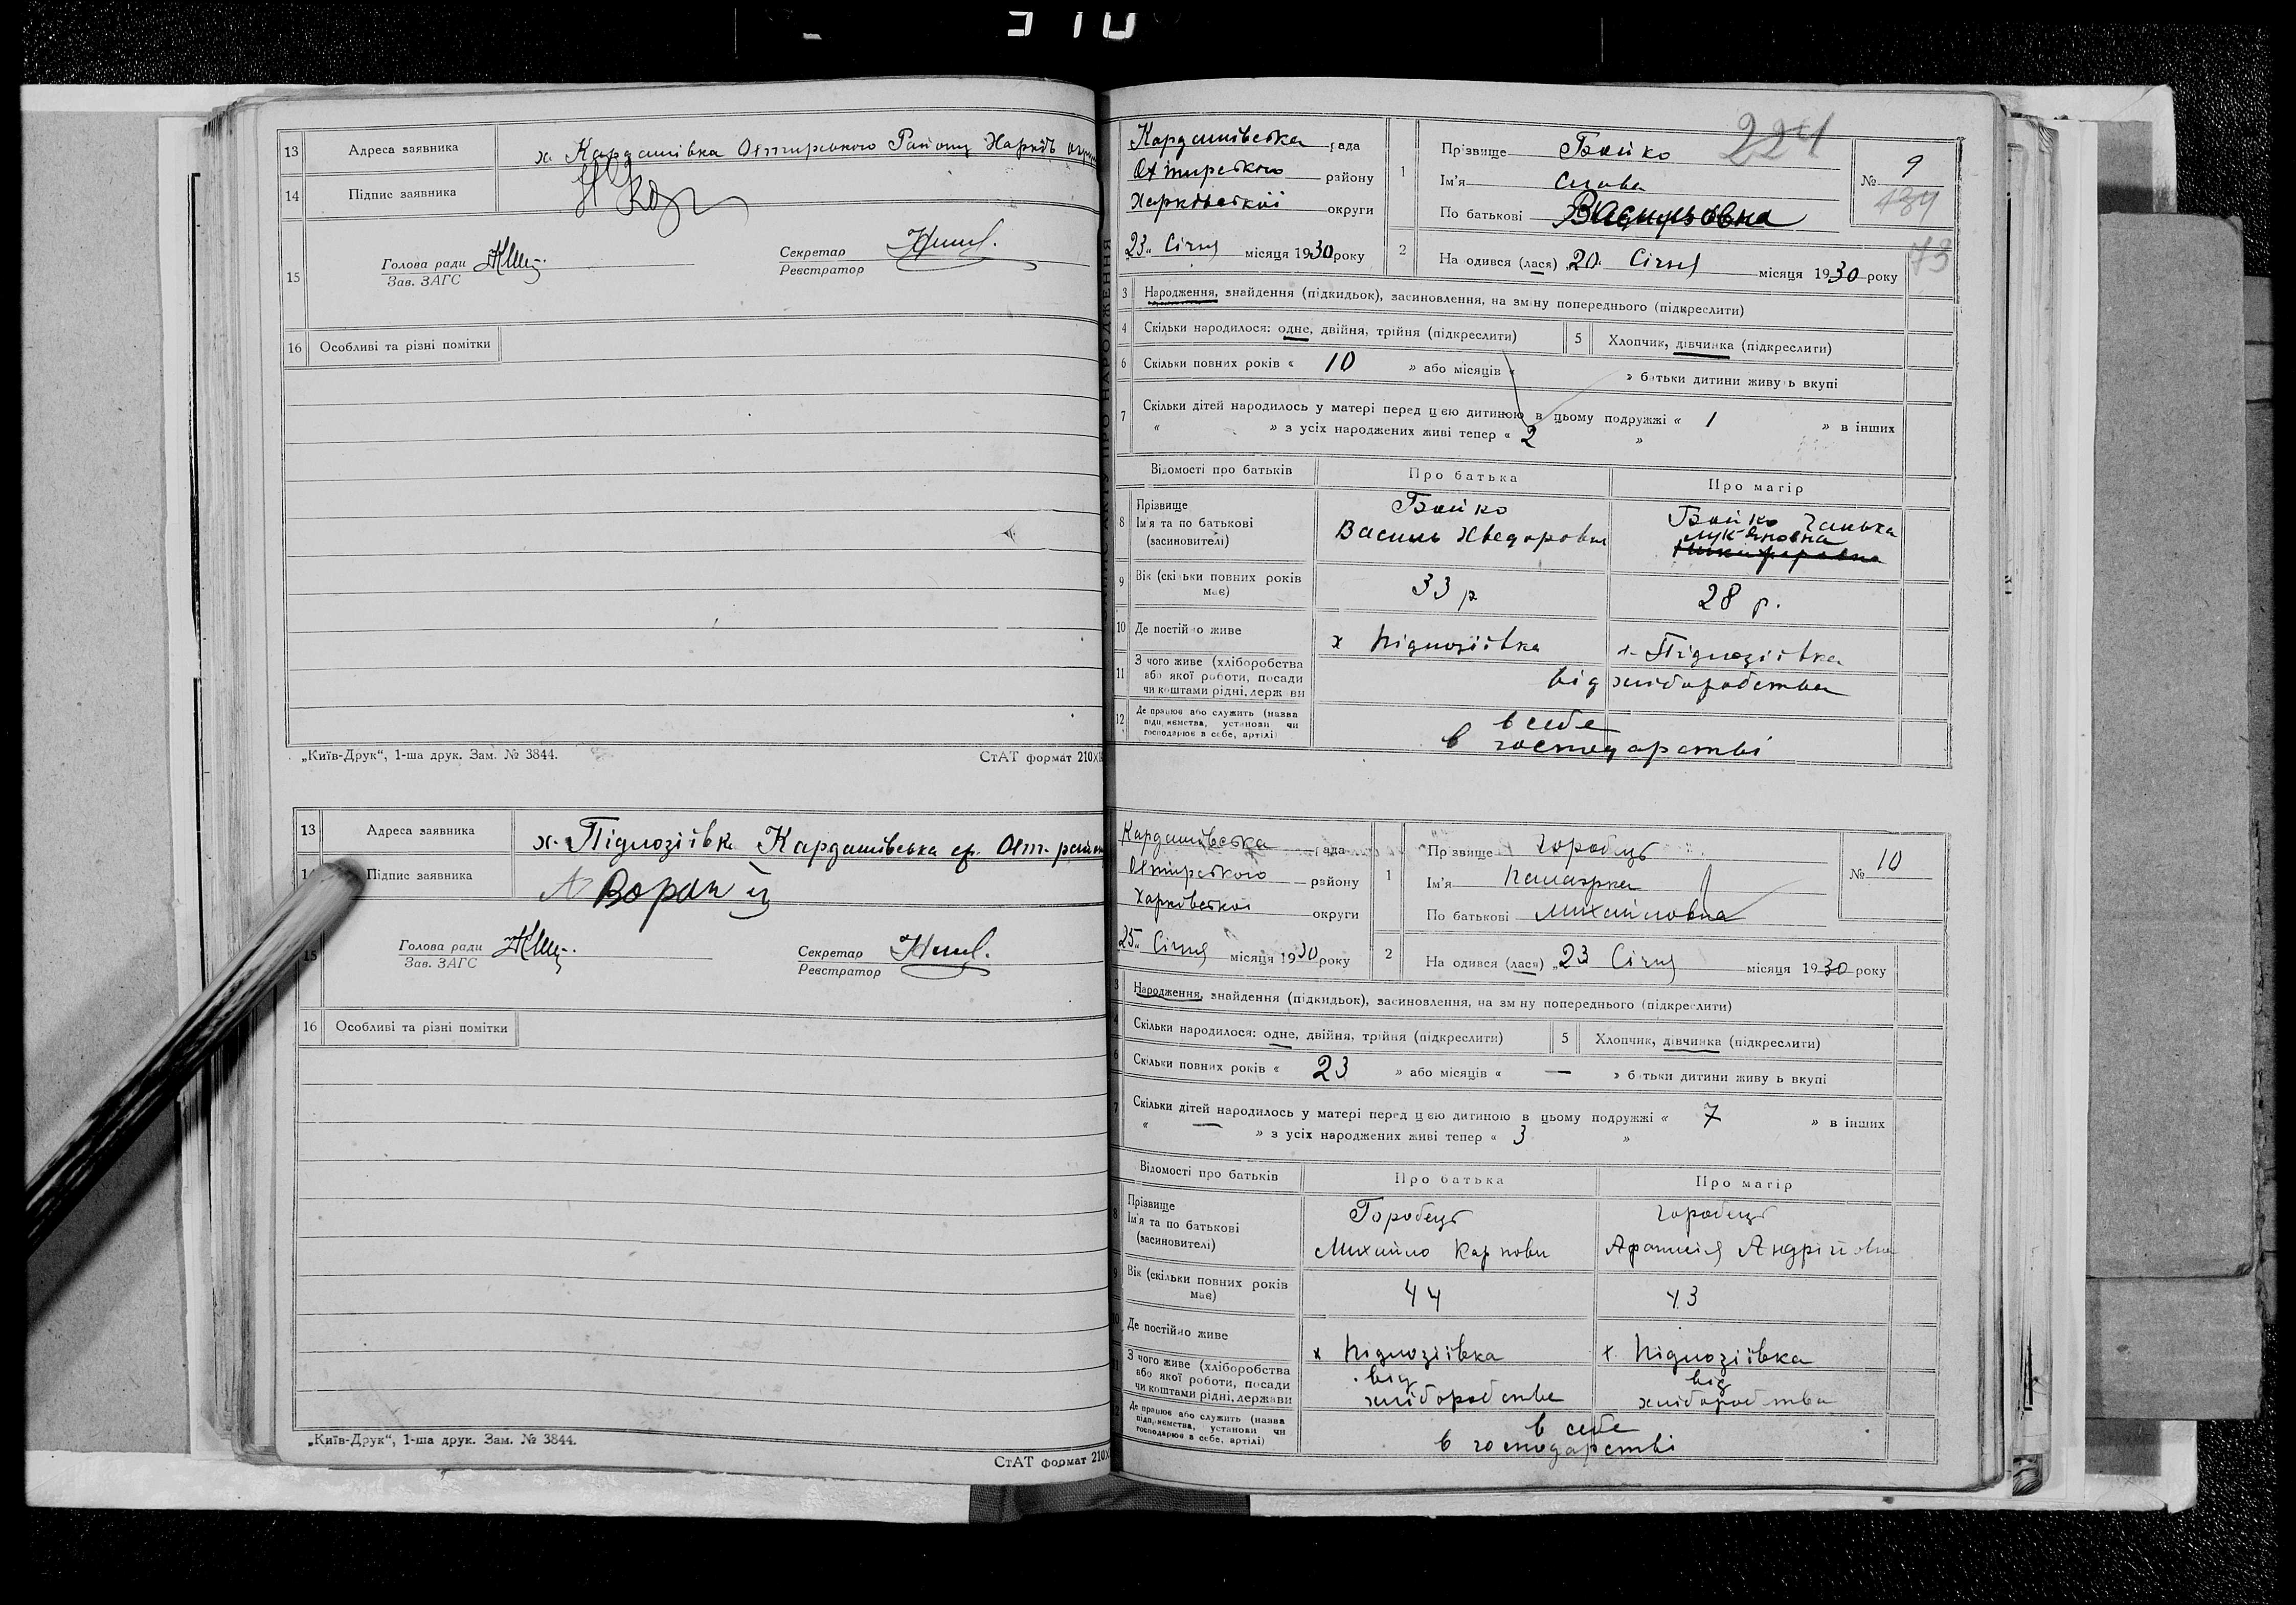 310
13 Адреса заявника х. Кардашівка Охтирського Району Харків округи
14 Підпис заявника
15 Голова ради Зав. ЗАГС Секретар Реєстратор
16 Особливі та різні помітки
„Київ-Друк“, 1-ша друк. Зам. № 3844. СтАТ формат 210X
13 Адреса заявника х. Підлозіївка Кардашівська ср. Охт. район
14 Підпис заявника
15 Голова ради Зав. ЗАГС Секретар Реєстратор
16 Особливі та різні помітки
„Київ-Друк“, 1-ша друк. Зам. № 3844.
СтАТ формат 210X
224
Кардашівська рада
Охтирського району
Харківської округи
23 Січня місяця 1930 року
1 Прізвище Бойко
Ім'я
По батькові Васильовна
№ 9
134
73
2 На одився (лася) „20 Січня місяця 1930 року
3 Народження, знайдення (підкидьок), засиновлення, на зміну попереднього (підкреслити)
4 Скільки народилося: одне, двійня, трійня (підкреслити) 5 Хлопчик, дівчинка (підкреслити)
6 Скільки повних років « 10 » або місяців « » батьки дитини живуть вкупі
7 Скільки дітей народилось у матері перед цією дитиною в цьому подружжі « 1 » в інших
« » з усіх народжених живі тепер « 2 »
Відомості про батьків Про батька Про матір
8 Прізвище Ім'я та по батькові (засиновителі)
Бойко
Василь Хведорович
Бойко Ганька
Лук'яновна
9 Вік (скільки повних років має) 33 р 28 р.
10 Де постійно живе х Підлозіївка х. Підлозіївка
11 З чого живе (хліборобства або якої роботи, посади чи коштами рідні, держави від хліборобства
12 Де працює або служить (назва підприємства, установи чи господарює в себе, артілі)
в себе
в господарстві
Кардашівська рада
Охтирського району
Харківської округи
25 Січня місяця 1930 року
1 Прізвище Горобець
Ім'я Палажка
По батькові Михайловна
№ 10
2 На одився (лася) „23 Січня місяця 1930 року
3 Народження, знайдення (підкидьок), засиновлення, на зміну попереднього (підкреслити)
4 Скільки народилося: одне, двійня, трійня (підкреслити) 5 Хлопчик, дівчинка (підкреслити)
6 Скільки повних років « 23 » або місяців « — » батьки дитини живуть вкупі
7 Скільки дітей народилось у матері перед цією дитиною в цьому подружжі « 7 » в інших
« — » з усіх народжених живі тепер « 3 »
Відомості про батьків Про батька Про матір
8 Прізвище Ім'я та по батькові (засиновителі)
Горобець Горобець
Михайло Карпович Афанасія Андріївна
9 Вік (скільки повних років має) 44 43
10 Де постійно живе х Підлозіївка х. Підлозіївка
11 З чого живе (хліборобства або якої роботи, посади чи коштами рідні, держави
від хліборобства від хліборобства
12 Де працює або служить (назва підприємства, установи чи господарює в себе, артілі)
в себе
в господарстві